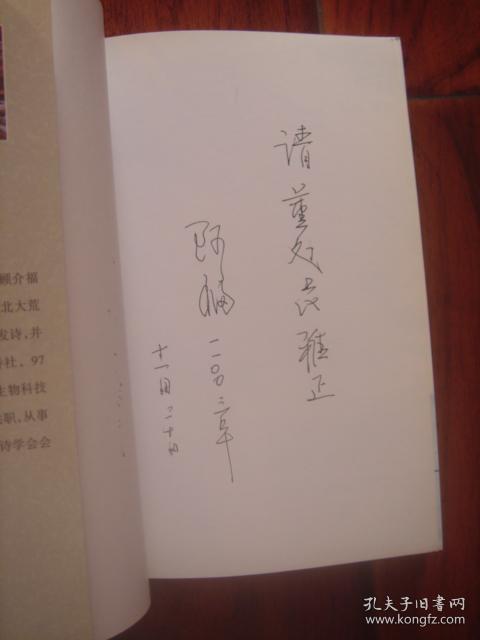 顾介福
北大荒
发诗,并
社. 97
生物科技
职,从事
诗学会会
请董处长雅正
福
十一月二十日
孔夫子旧书网
www.kongfz.com